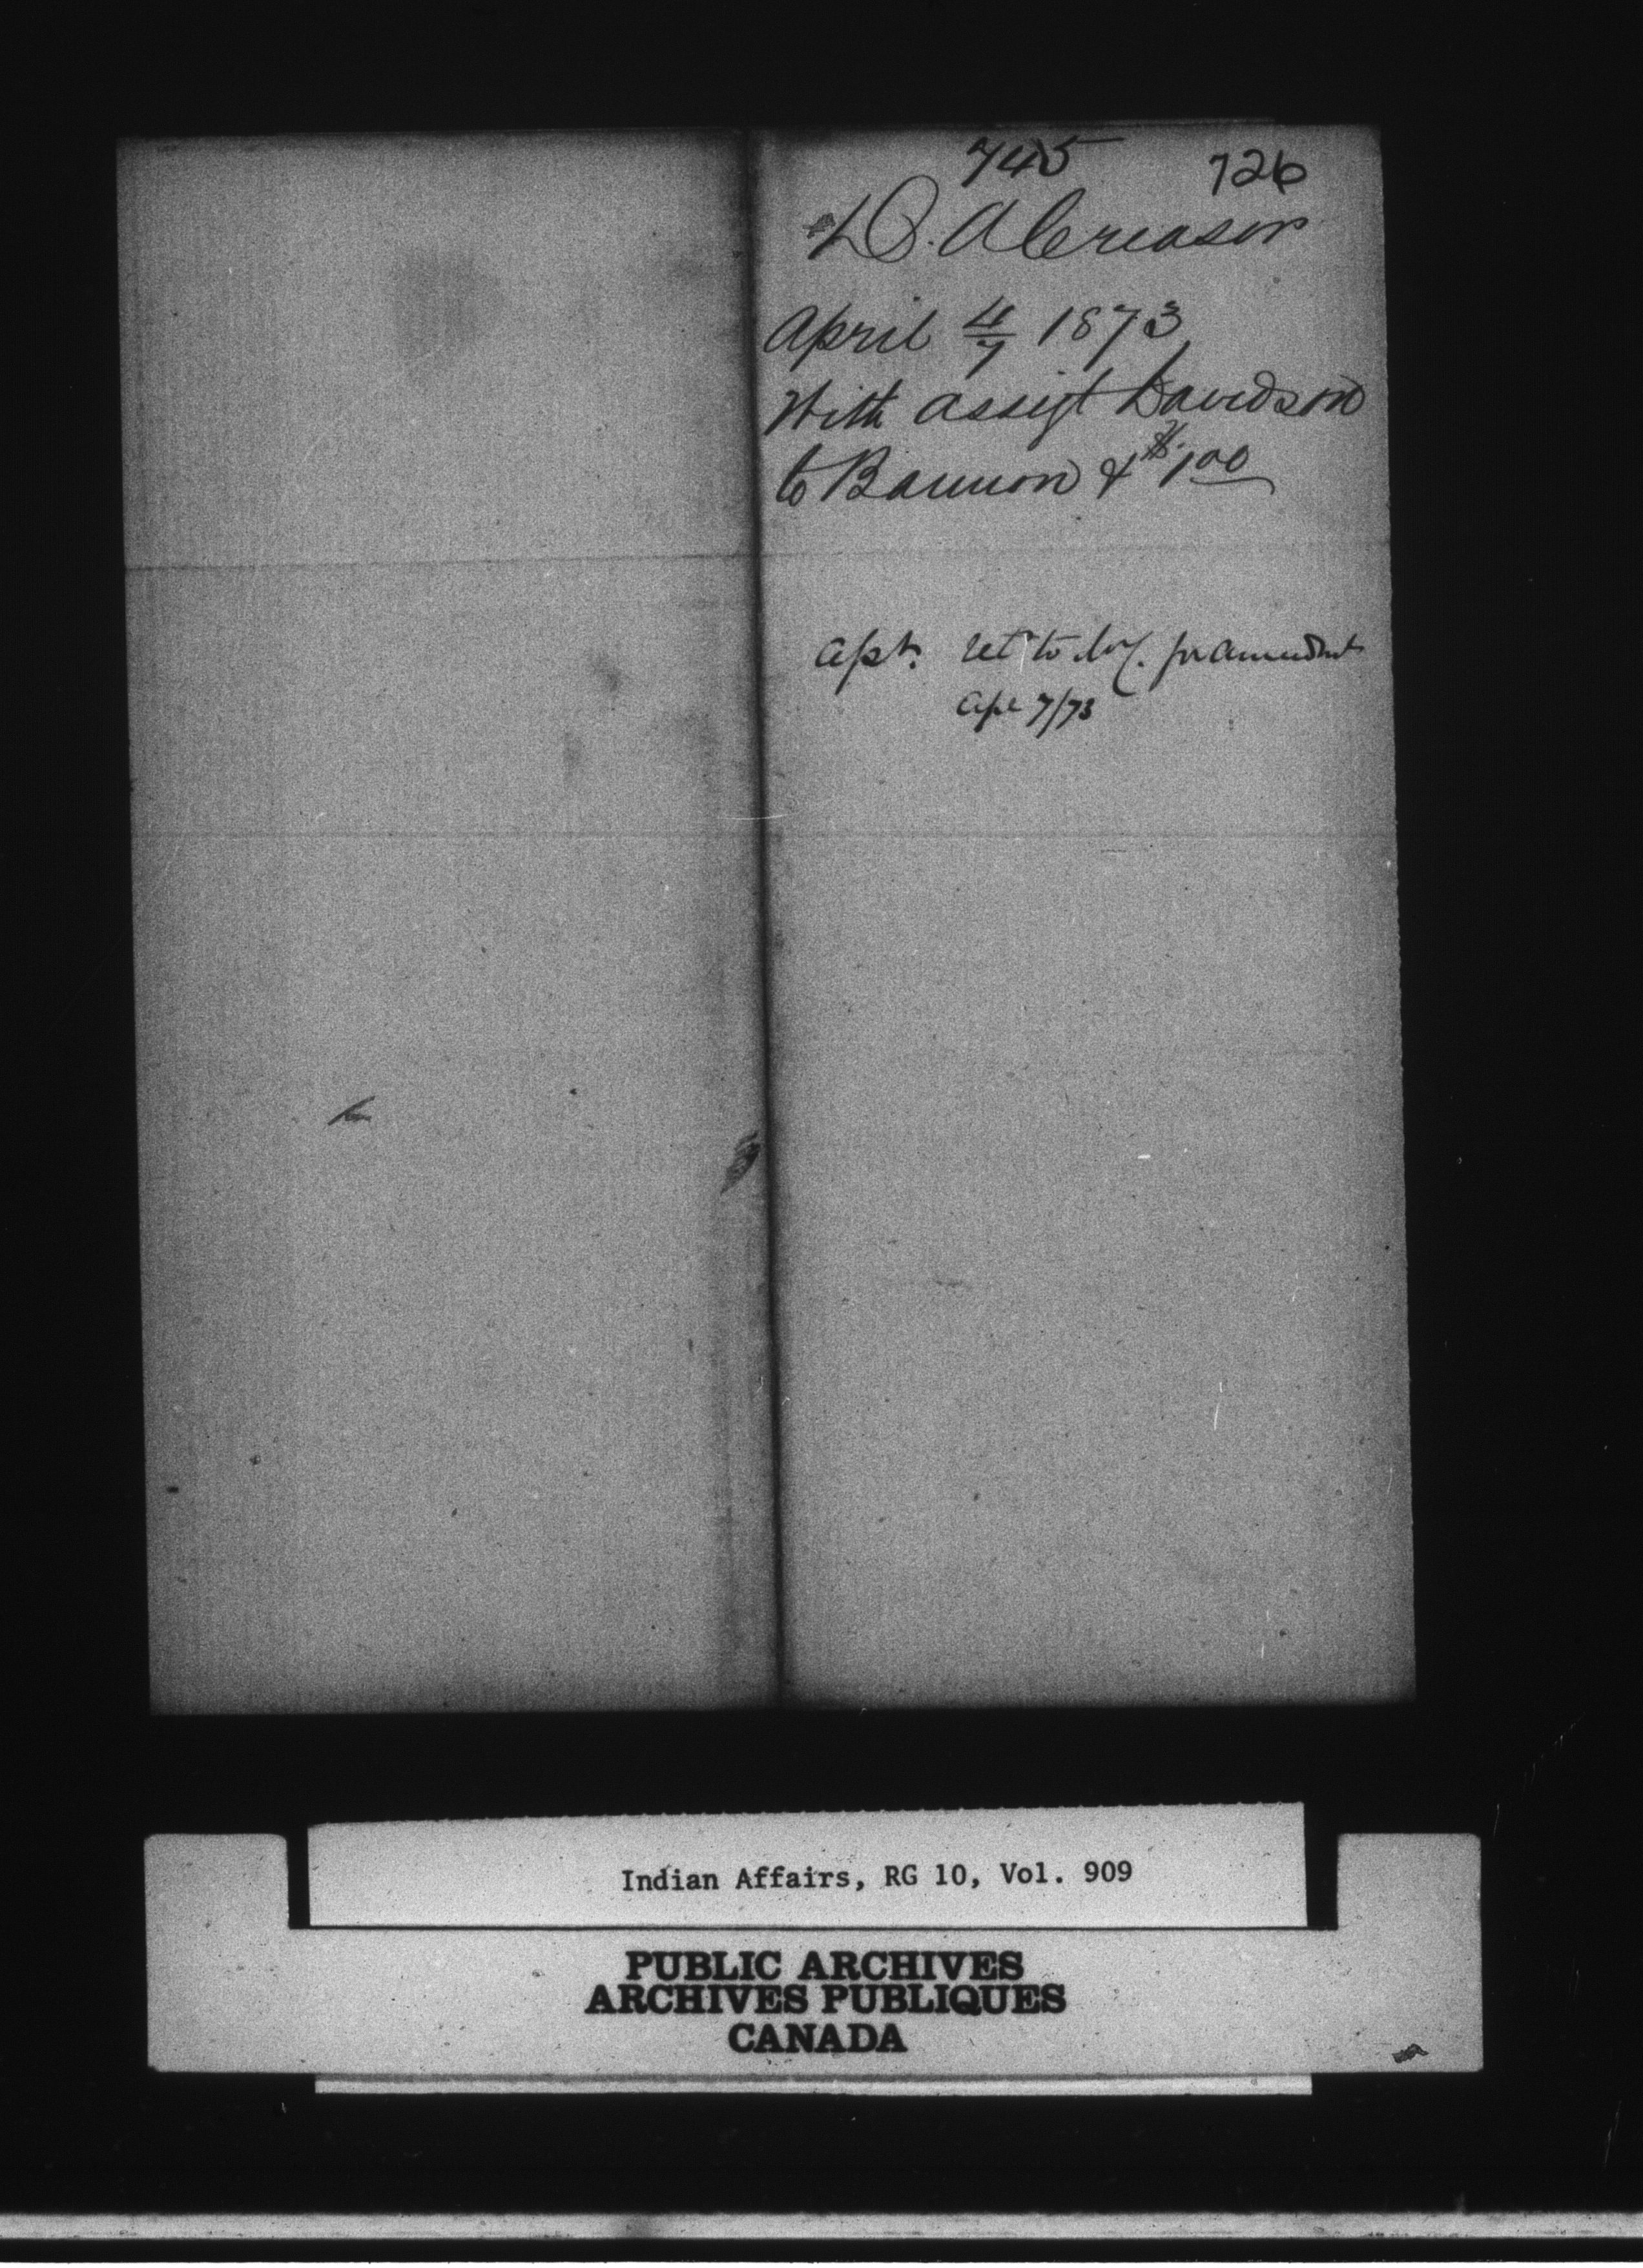 745 726
D. A Creasor
April 4/7 1873
With assigt Davidson
to Bannon & $1.00
Apt. ret to for amendmt
Apl 7/73
Indian Affairs, RG 10, Vol. 909
PUBLIC ARCHIVES
ARCHIVES PUBLIQUES
CANADA